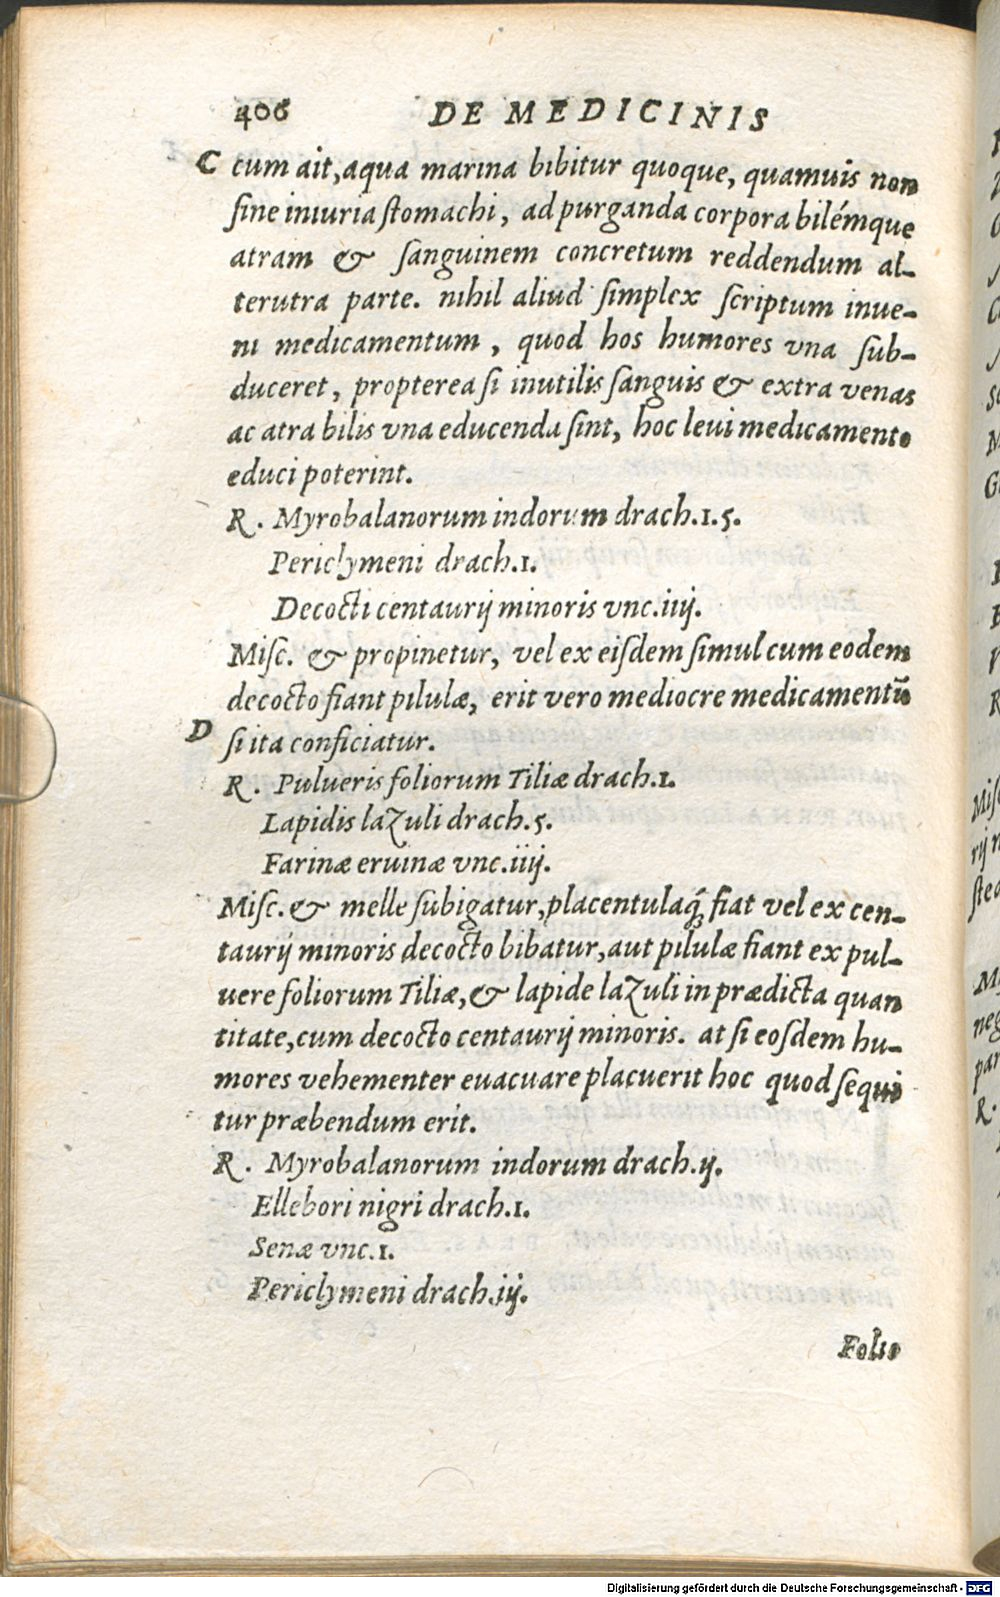 406 DE MEDICINIS
C cum ait, aqua marina bibitur quoque, quamuis non
ſine iniuria ſtomachi, ad purganda corpora bilémque
atram & ſanguinem concretum reddendum al-
terutra parte. nihil aliud ſimplex ſcriptum inue-
ni medicamentum, quod hos humores vna ſub-
duceret, propterea ſi inutilis ſanguis & extra venas
ac atra bilis vna educenda ſint, hoc leui medicamento
educi poterint.
R. Myrobalanorum indorum drach.1.5.
Periclymeni drach.1.
Decocti centaurij minoris vnc.iiij.
Miſc. & propinetur, vel ex eiſdem ſimul cum eodem
decocto fiant pilulæ, erit vero mediocre medicamentū
D ſi ita conficiatur.
R. Pulueris foliorum Tiliæ drach.1.
Lapidis lazuli drach.5.
Farinæ eruinæ vnc.iiij.
Miſc. & melle ſubigatur, placentulaq́; fiat vel ex cen-
taurij minoris decocto bibatur, aut pilulæ fiant ex pul-
uere foliorum Tiliæ, & lapide lazuli in prædicta quan
titate, cum decocto centaurij minoris. at ſi eoſdem hu-
mores vehementer euacuare placuerit hoc quod ſequi
tur præbendum erit.
R. Myrobalanorum indorum drach.ij.
Ellebori nigri drach.1.
Senæ vnc.1.
Periclymeni drach.iij.
Folio
Digitalisierung gefördert durch die Deutsche Forschungsgemeinschaft - DFG